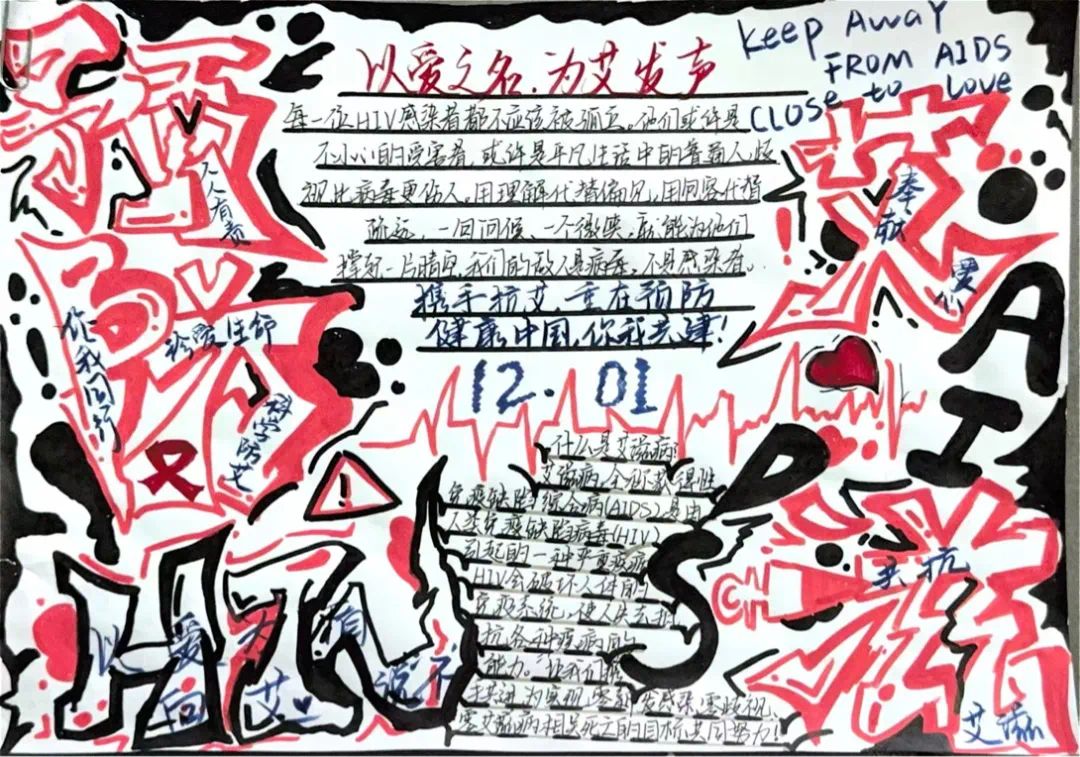 以爱之名,为艾发声
Keep Away
FROM AIDS
CLOSE to Love
每一位HIV感染者都不应该被孤立。他们或许是
不小心的受害者,或许是平凡生活中的普通人,歧
视比病毒更伤人。用理解代替偏见,用包容代替
疏远,一回问候、一个微笑,就能为他们
撑好一片晴空,我们的敌人是病毒,不是感染者。
携手抗艾,重在预防
健康中国,你我共建!
12.01
预防
艾滋
人人有责
你我同行
珍爱生命
科学防艾
奉献
爱心
AIDS
什么是艾滋病?
艾滋病,全称获得性
免疫缺陷综合病(AIDS),是由
人类免疫缺陷病毒(HIV)
引起的一种严重疾病
HIV会破坏人体的
免疫系统,使人失去抵
抗各种疾病的
能力。让我们携
手共进,为实现"零新发感染、零歧视、
零艾滋病相关死亡"的目标共同努力!
HIV
以爱为盾
向艾说不
共抗
艾滋